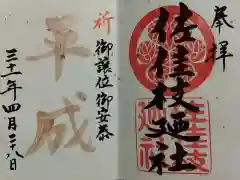 奉拝
佐佳枝廼社
祈 御譲位御安泰
平成
三十一年四月二十八日